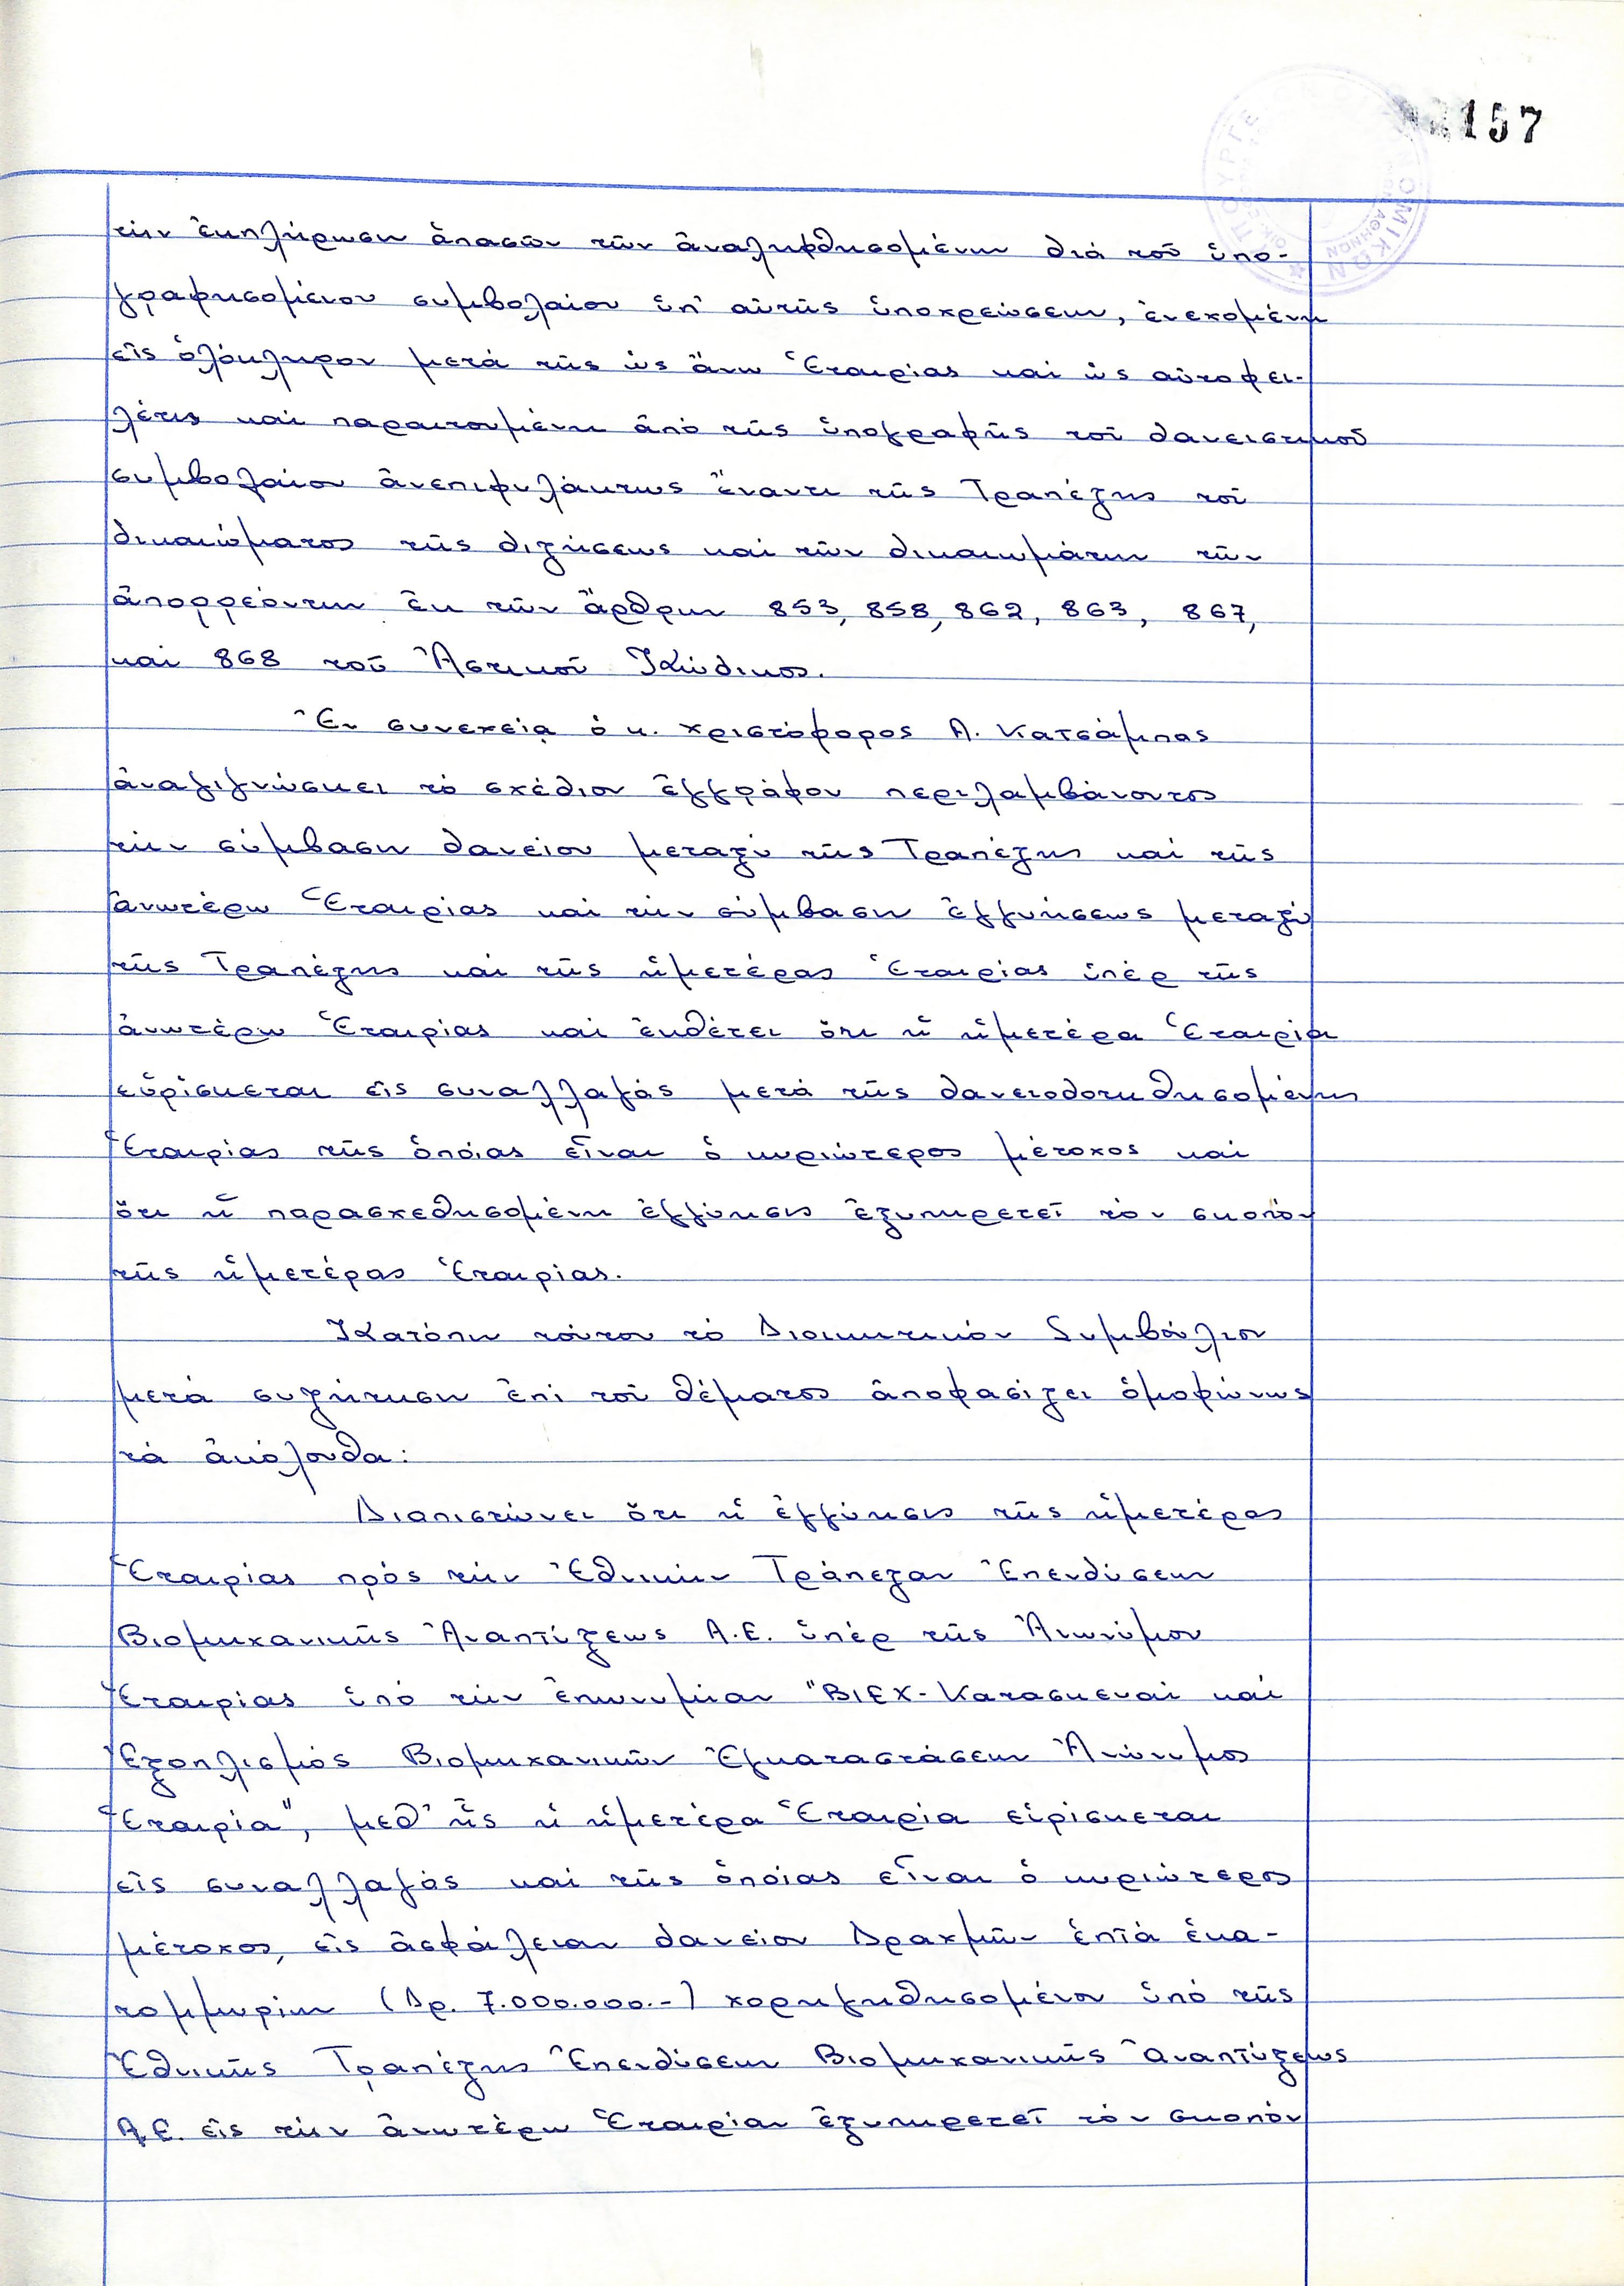 157
ΥΠΟΥΡΓΕΙΟΝ ΟΙΚΟΝΟΜΙΚΩΝ
ΑΘΗΝΩΝ
τήν ἐκπλήρωσιν ἁπασῶν τῶν ἀναληφθησομένων διά τοῦ ὑπο-
γραφησομένου συμβολαίου ὑπ' αὐτῆς ὑποχρεώσεων, ἐνεχομένη
εἰς ὁλόκληρον μετά τῆς ὡς ἄνω Ἑταιρίας καί ὡς αὐτοφει-
λέτις καί παραιτουμένη ἀπό τῆς ὑπογραφῆς τοῦ δανειστικοῦ
συμβολαίου ἀνεπιφυλάκτως ἔναντι τῆς Τραπέζης τοῦ
δικαιώματος τῆς διζήσεως καί τῶν δικαιωμάτων τῶν
ἀπορρεόντων ἐκ τῶν ἄρθρων 853, 858, 862, 863, 867,
καί 868 τοῦ Ἀστικοῦ Κώδικος.
Ἐν συνεχείᾳ ὁ κ. Χριστόφορος Α. Κατσάμπας
ἀναγιγνώσκει τό σχέδιον ἐγγράφου περιλαμβάνοντος
τήν σύμβασιν δανείου μεταξύ τῆς Τραπέζης καί τῆς
ἀνωτέρω Ἑταιρίας καί τήν σύμβασιν ἐγγυήσεως μεταξύ
τῆς Τραπέζης καί τῆς ἡμετέρας Ἑταιρίας ὑπέρ τῆς
ἀνωτέρω Ἑταιρίας καί ἐκθέτει ὅτι ἡ ἡμετέρα Ἑταιρία
εὑρίσκεται εἰς συναλλαγάς μετά τῆς δανειοδοτηθησομένης
Ἑταιρίας τῆς ὁποίας εἶναι ὁ κυριώτερος μέτοχος καί
ὅτι ἡ παρασχεθησομένη ἐγγύησις ἐξυπηρετεῖ τόν σκοπόν
τῆς ἡμετέρας Ἑταιρίας.
Κατόπιν τούτου τό Διοικητικόν Συμβούλιον
μετά συζήτησιν ἐπί τοῦ θέματος ἀποφασίζει ὁμοφώνως
τά ἀκόλουθα:
Διαπιστώνει ὅτι ἡ ἐγγύησις τῆς ἡμετέρας
Ἑταιρίας πρός τήν Ἐθνικήν Τράπεζαν Ἐπενδύσεων
Βιομηχανικῆς Ἀναπτύξεως Α.Ε. ὑπέρ τῆς Ἀνωνύμου
Ἑταιρίας ὑπό τήν ἐπωνυμίαν "ΒΙΕΧ-Κατασκευαί καί
Ἐξοπλισμός Βιομηχανικῶν Ἐγκαταστάσεων Ἀνώνυμος
Ἑταιρία", μεθ' ἧς ἡ ἡμετέρα Ἑταιρία εὑρίσκεται
εἰς συναλλαγάς καί τῆς ὁποίας εἶναι ὁ κυριώτερος
μέτοχος, εἰς ἀσφάλειαν δανείου Δραχμῶν ἑπτά ἑκα-
τομμυρίων (Δρ. 7.000.000.-) χορηγηθησομένου ὑπό τῆς
Ἐθνικῆς Τραπέζης Ἐπενδύσεων Βιομηχανικῆς Ἀναπτύξεως
Α.Ε. εἰς τήν ἀνωτέρω Ἑταιρίαν ἐξυπηρετεῖ τόν σκοπόν